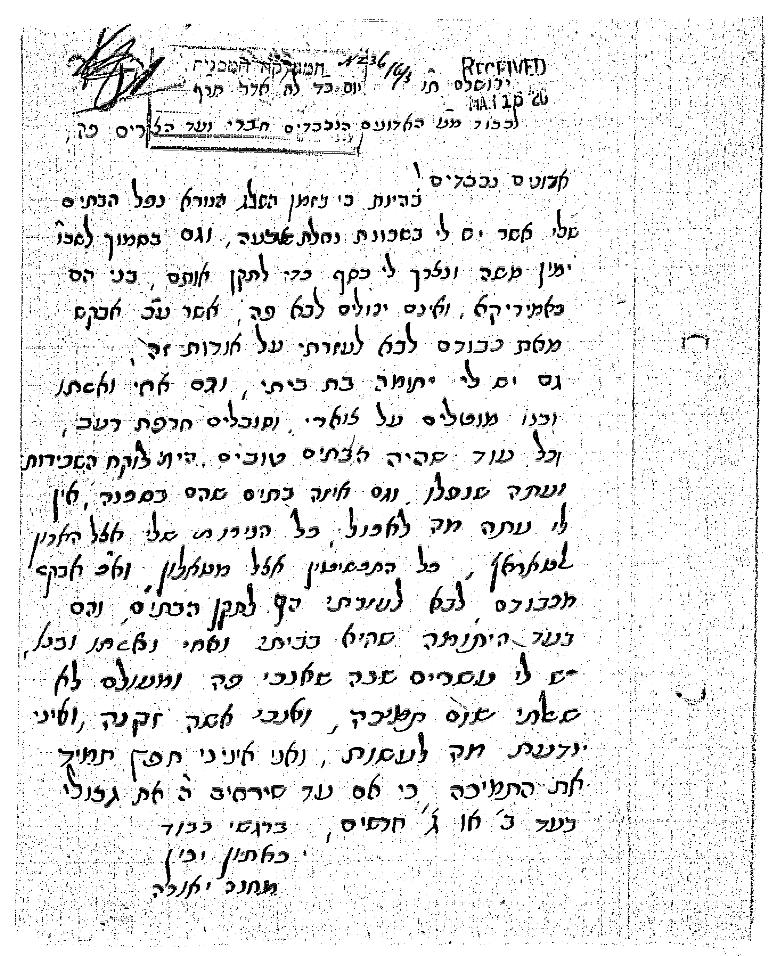 RECEIVED
MAR 16 20
ירושלם
לכבוד האדונים הנכבדים חברי ועד הצירים פה,
אדונים נכבדים!
בהיות כי בזמן השלג הנורא נפל הבתים
שלי אשר יש לי בשכונת נחלת שבעה, וגם בסמוך
ימין משה ונצרך לי כסף כדי לתקן אותם, בני הם
באמיריקא, ואינם יכולים לבא פה, אשר ע״כ אבקש
מאת כבודם לבא לעזרתי על אודות זה,
גם יש לי יתומה בת ביתי, וגם אחי ואשתו
ובנו מוטלים על צוארי, וסובלים חרפת רעב,
וכל עוד שהיה הבתים טובים, הייתי לוקח השכירות
ועתה שנפלו, וגם אינה בתים שהם בסכנה, אין
לי עתה מה לאכול, כל הניירות שלי אצל הארון
כל התכשיטין אצל ואני אבקש
מכבודם לבא לעזרתי הן לתקן הבתים, והם
בעד היתומה שהיא בביתי ואחי ואשתו ובנו,
יש לי עשרים שנה שאנכי פה ומעולם לא
שאלתי שום תמיכה, ואנכי אשה זקנה, ואיני
יודעת מה לעשות, ואני אינני חפץ תמיד
את התמיכה כי אם עד שירחיב ה׳ את גבולי
בעד ב׳ או ג׳ חדשים, ברגשי כבוד